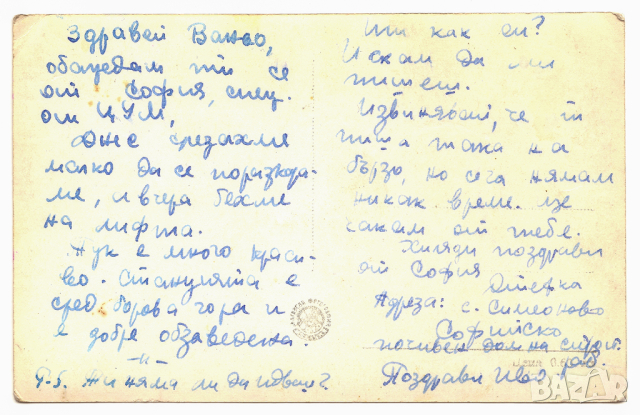 Здравей Ваньо,
обаждам ти се
от София, спец.
от ЦУМ,
Днес слезахме
малко да се поразходи-
ме, и вчера бехме
на лифта.
Тук е много краси-
во. Станцията е
сред борова гора и
е добре обзаведена.
-||-
P.S. Ти няма ли да идваш?
Ти как си?
Искам да ми
пишеш.
Извинявай, че ти
пиша така на
бързо, но сега нямам
никак време. Ще
чакам от тебе.
Хиляди поздрави
от София
Стефка
Адреза: с. Симеоново
Софийско
почивен дом на
Поздрави